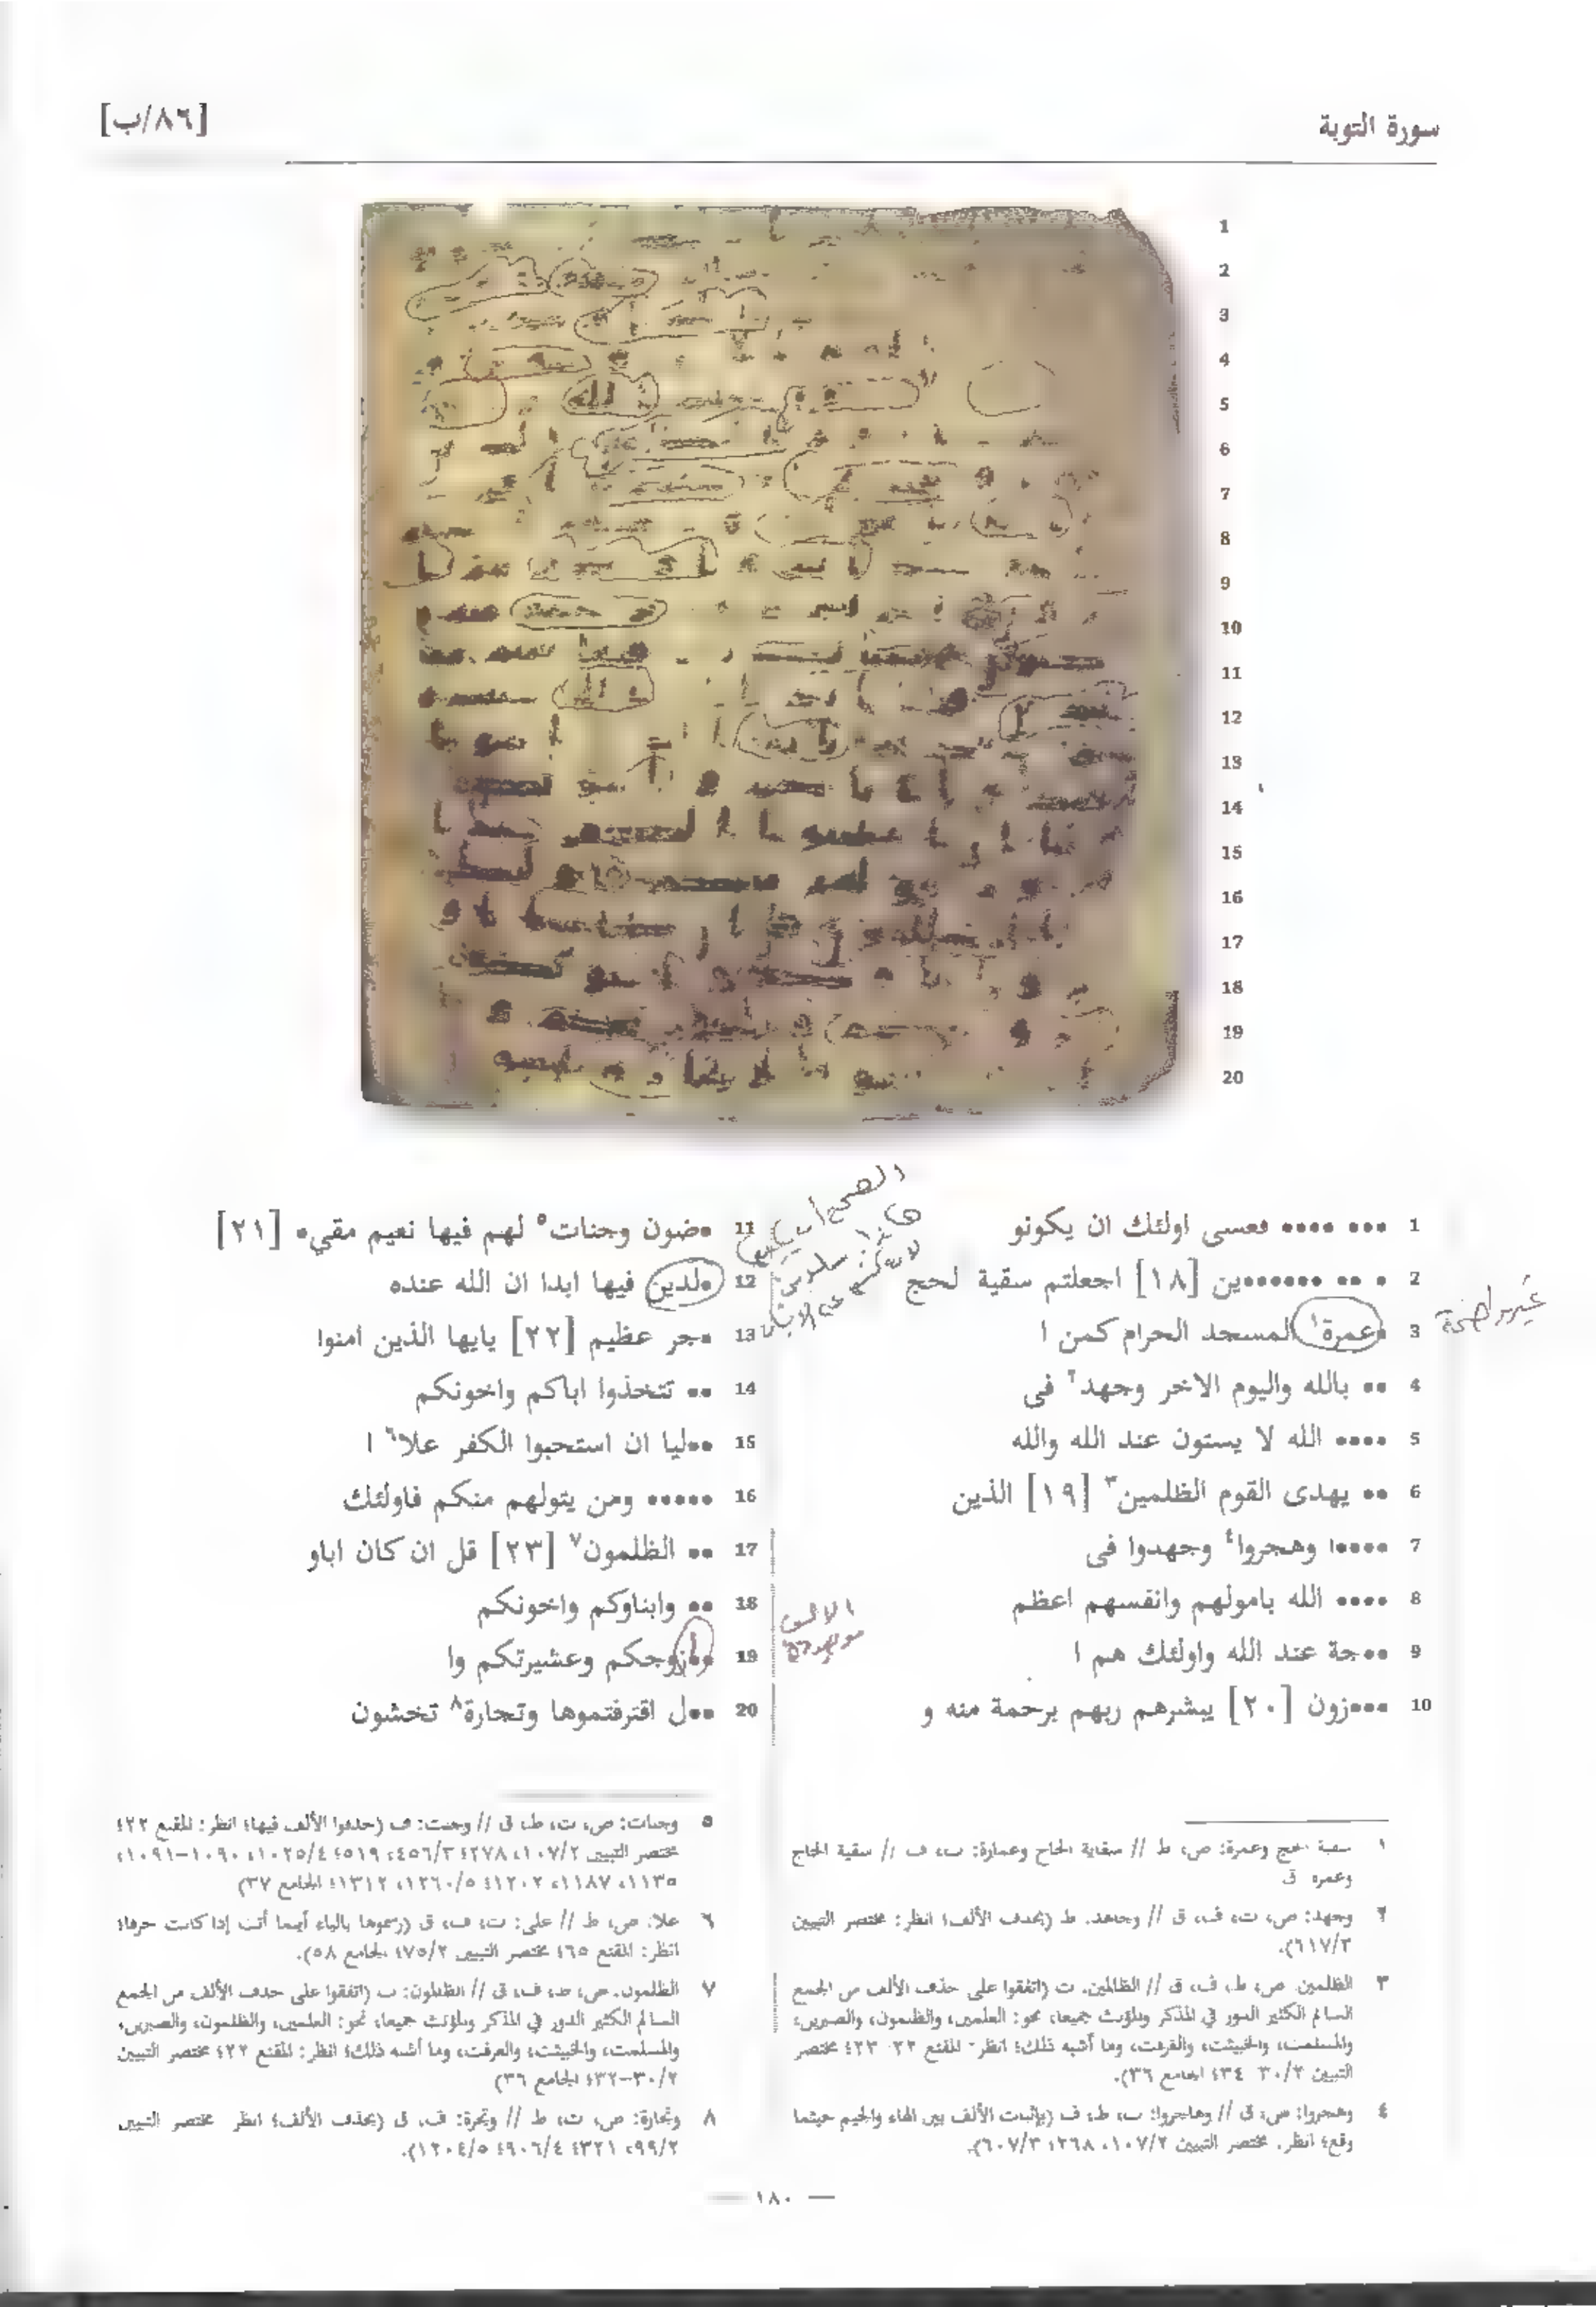 سورة التوبة
[٨٦/ب]
1
2
3
4
5
6
7
8
9
10
11
12
13
14
15
16
17
18
19
20
1 ••• •••• فعسى اولئك ان يكونو
2 • •• •••••••ين [١٨] اجعلتم سقية لحج
3 •عمرة١ المسجد الحرام كمن ا
4 •• بالله واليوم الاخر وجهد٢ فى
5 •••• الله لا يستون عند الله والله
6 •• يهدى القوم الظلمين٣ [١٩] الذين
7 ••••ا وهجروا٤ وجهدوا فى
8 •••• الله بامولهم وانفسهم اعظم
9 ••جة عند الله واولئك هم ا
10 •••زون [٢٠] يبشرهم ربهم برحمة منه و
غير واضحة
11 •ضون وجنات٥ لهم فيها نعيم مقي• [٢١]
12 •لدين فيها ابدا ان الله عنده
13 •جر عظيم [٢٢] يايها الذين امنوا
14 •• تتخذوا اباكم واخونكم
15 ••ليا ان استحبوا الكفر علا٦ ا
16 ••••• ومن يتولهم منكم فاولئك
17 •• الظلمون٧ [٢٣] قل ان كان اباو
18 •• وابناوكم واخونكم
19 وازوجكم وعشيرتكم وا
20 ••ل اقترفتموها وتجارة٨ تخشون
الالف
موجودة
١ سقية الحج وعمرة: ص، ط // سقاية الحاج وعمارة: ت، ف // سقية الحاج
وعمره ق
٢ وجهد: ص، ت، ف، ق // وجاهد. ط (بحذف الألف؛ انظر: مختصر التبيين
٦١٧/٣).
٣ الظلمين ص، ط، ف، ق // الظالمين. ت (اتفقوا على حذف الألف من الجمع
السالم الكثير الدور في المذكر والمؤنث جميعا، نحو: العلمين، والظلمون، والصبرين،
والمسلمت، والخبيثت، والغرفت، وما أشبه ذلك؛ انظر: المقنع ٢٢-٢٣؛ مختصر
التبيين ٣٠/٢-٣٤؛ الجامع ٣٦).
٤ وهجروا: ص، ق // وهاجروا: ت، ط، ف (بإثبات الألف بين الهاء والجيم حيثما
وقع؛ انظر. مختصر التبيين ١٠٧/٢، ٢٦٨؛ ٦٠٧/٣).
٥ وجنات: ص، ت، ط، ق // وجنت: ف (حذفوا الألف فيها؛ انظر: المقنع ٢٢؛
مختصر التبيين ١٠٧/٢، ٢٧٨؛ ٤٥٦/٣، ٥١٩؛ ١٠٢٥/٤، ١٠٩٠-١٠٩١،
١١٣٥، ١١٨٧، ١٢٠٢؛ ١٢٦٠/٥، ١٣١٢؛ الجامع ٣٧)
٦ علا: ص، ط // على: ت، ف، ق (رسموها بالياء أينما أتت إذا كانت حرفا؛
انظر: المقنع ٦٥؛ مختصر التبيين ٧٥/٢؛ الجامع ٥٨).
٧ الظلمون. ص، ط، ف، ق // الظالمون: ت (اتفقوا على حذف الألف من الجمع
السالم الكثير الدور في المذكر والمؤنث جميعا، نحو: العلمين، والظلمون، والصبرين،
والمسلمت، والخبيثت، والغرفت، وما أشبه ذلك؛ انظر: المقنع ٢٢؛ مختصر التبيين
٣٠/٢-٣٢؛ الجامع ٣٦)
٨ وتجارة: ص، ت، ط // وتجرة: ف، ق (بحذف الألف؛ انظر مختصر التبيين
٩٩/٢، ٣٢١؛ ٩٠٦/٤؛ ١٢٠٤/٥).
— ١٨٠ —